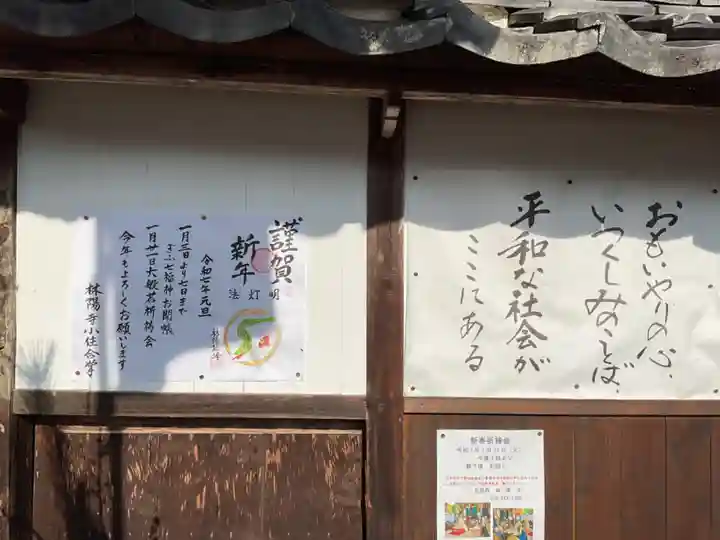 おもいやりの心、
いつくしみのことば、
平和な社会が
ここにある
謹賀
新年
法灯明
令和七年元旦
一月三日より七日まで
ぎふ七福神お開帳
一月廿一日大般若祈祷会
今年もよろしくお願いします
林陽寺小住合掌
新春祈祷会